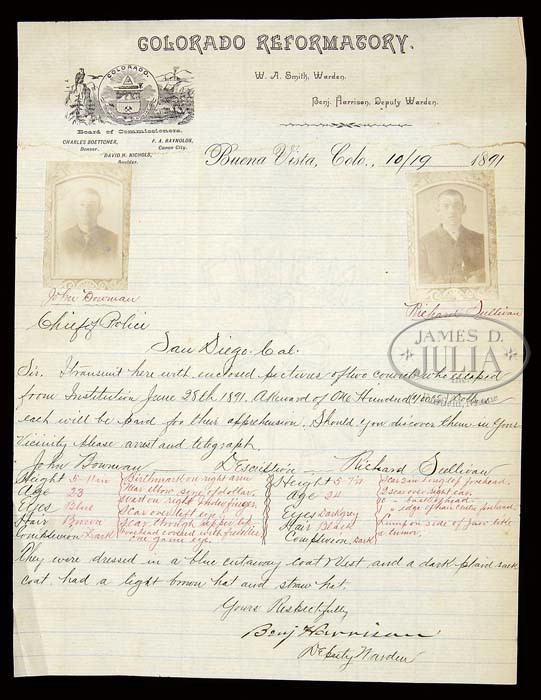 COLORADO REFORMATORY.
W. A. Smith, Warden.
Benj. Harrison, Deputy Warden.
COLORADO
Board of Commissioners.
CHARLES BOETTCHER, F. A. RAYNOLDS,
Denver. Canon City.
DAVID H. NICHOLS,
Boulder.
Buena Vista, Colo., 10/19 1891
John Bowman Richard Sullivan
Chief of Police
San Diego. Cal.
JAMES D. JULIA
Sir. I transmit here with enclosed pictures of two convicts who escaped
from Institution June 28th 1891. A Reward of One Hundred Dollars
each will be paid for their apprehension. Should you discover them in your
vicinity please arrest and telegraph.
John Bowman Description Richard Sullivan
Height 5 Birthmark on right arm Height 5 Scar on top forehead
Age 23 near elbow size of dollar. Age 24 Scar over right ear.
Eyes Blue Wart on right forefinger. Eyes dark grey
Hair Brown Scar over left eye Hair Black edge of hair center forehead.
Complexion Dark Scar through upper lip. Complexion dark Lump on side of jaw like
forehead covered with freckles a tumor.
one game eye.
They were dressed in a blue cutaway coat & vest and a dark plaid sack
coat. had a light brown hat and straw hat.
Yours Respectfully
Benj Harrison
Deputy Warden